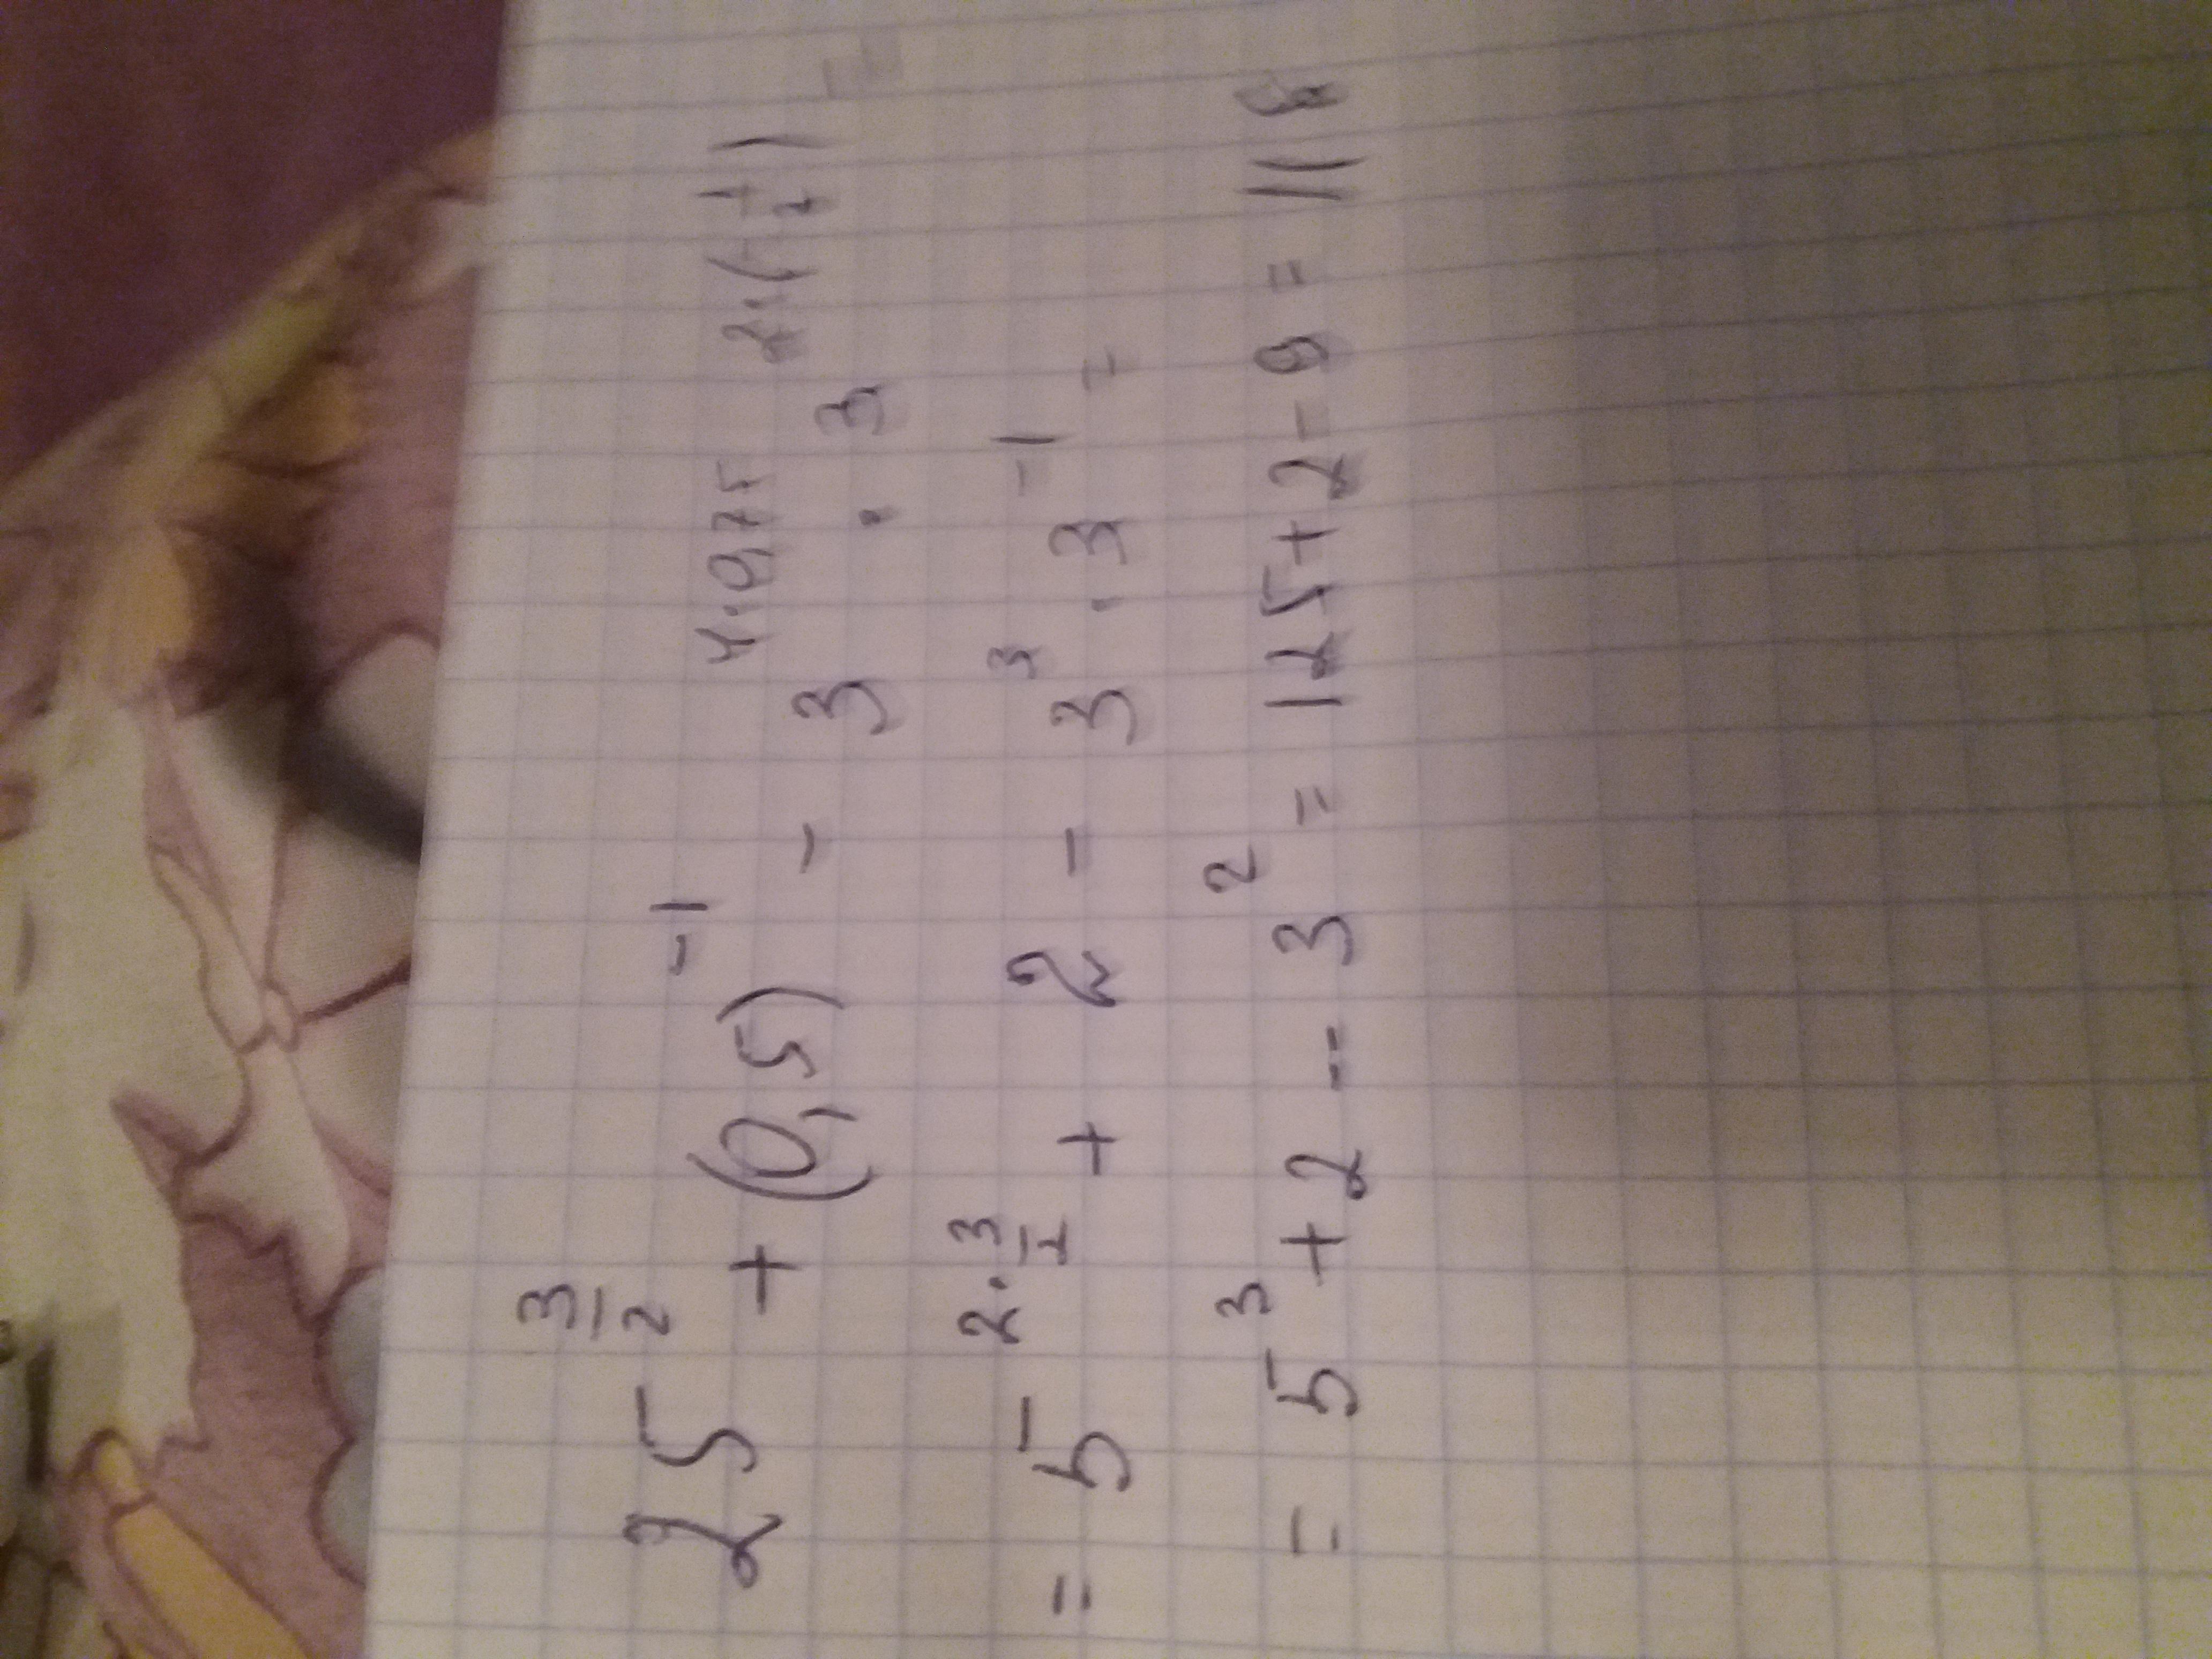 25^{\frac{3}{2}} + (0,5)^{-1} - 3^{4·0,75} · 3^{2·(-\frac{1}{2})} =
= 5^{2·\frac{3}{2}} + 2 - 3^{3} · 3^{-1} =
= 5^{3} + 2 - 3^{2} = 125 + 2 - 9 = 118